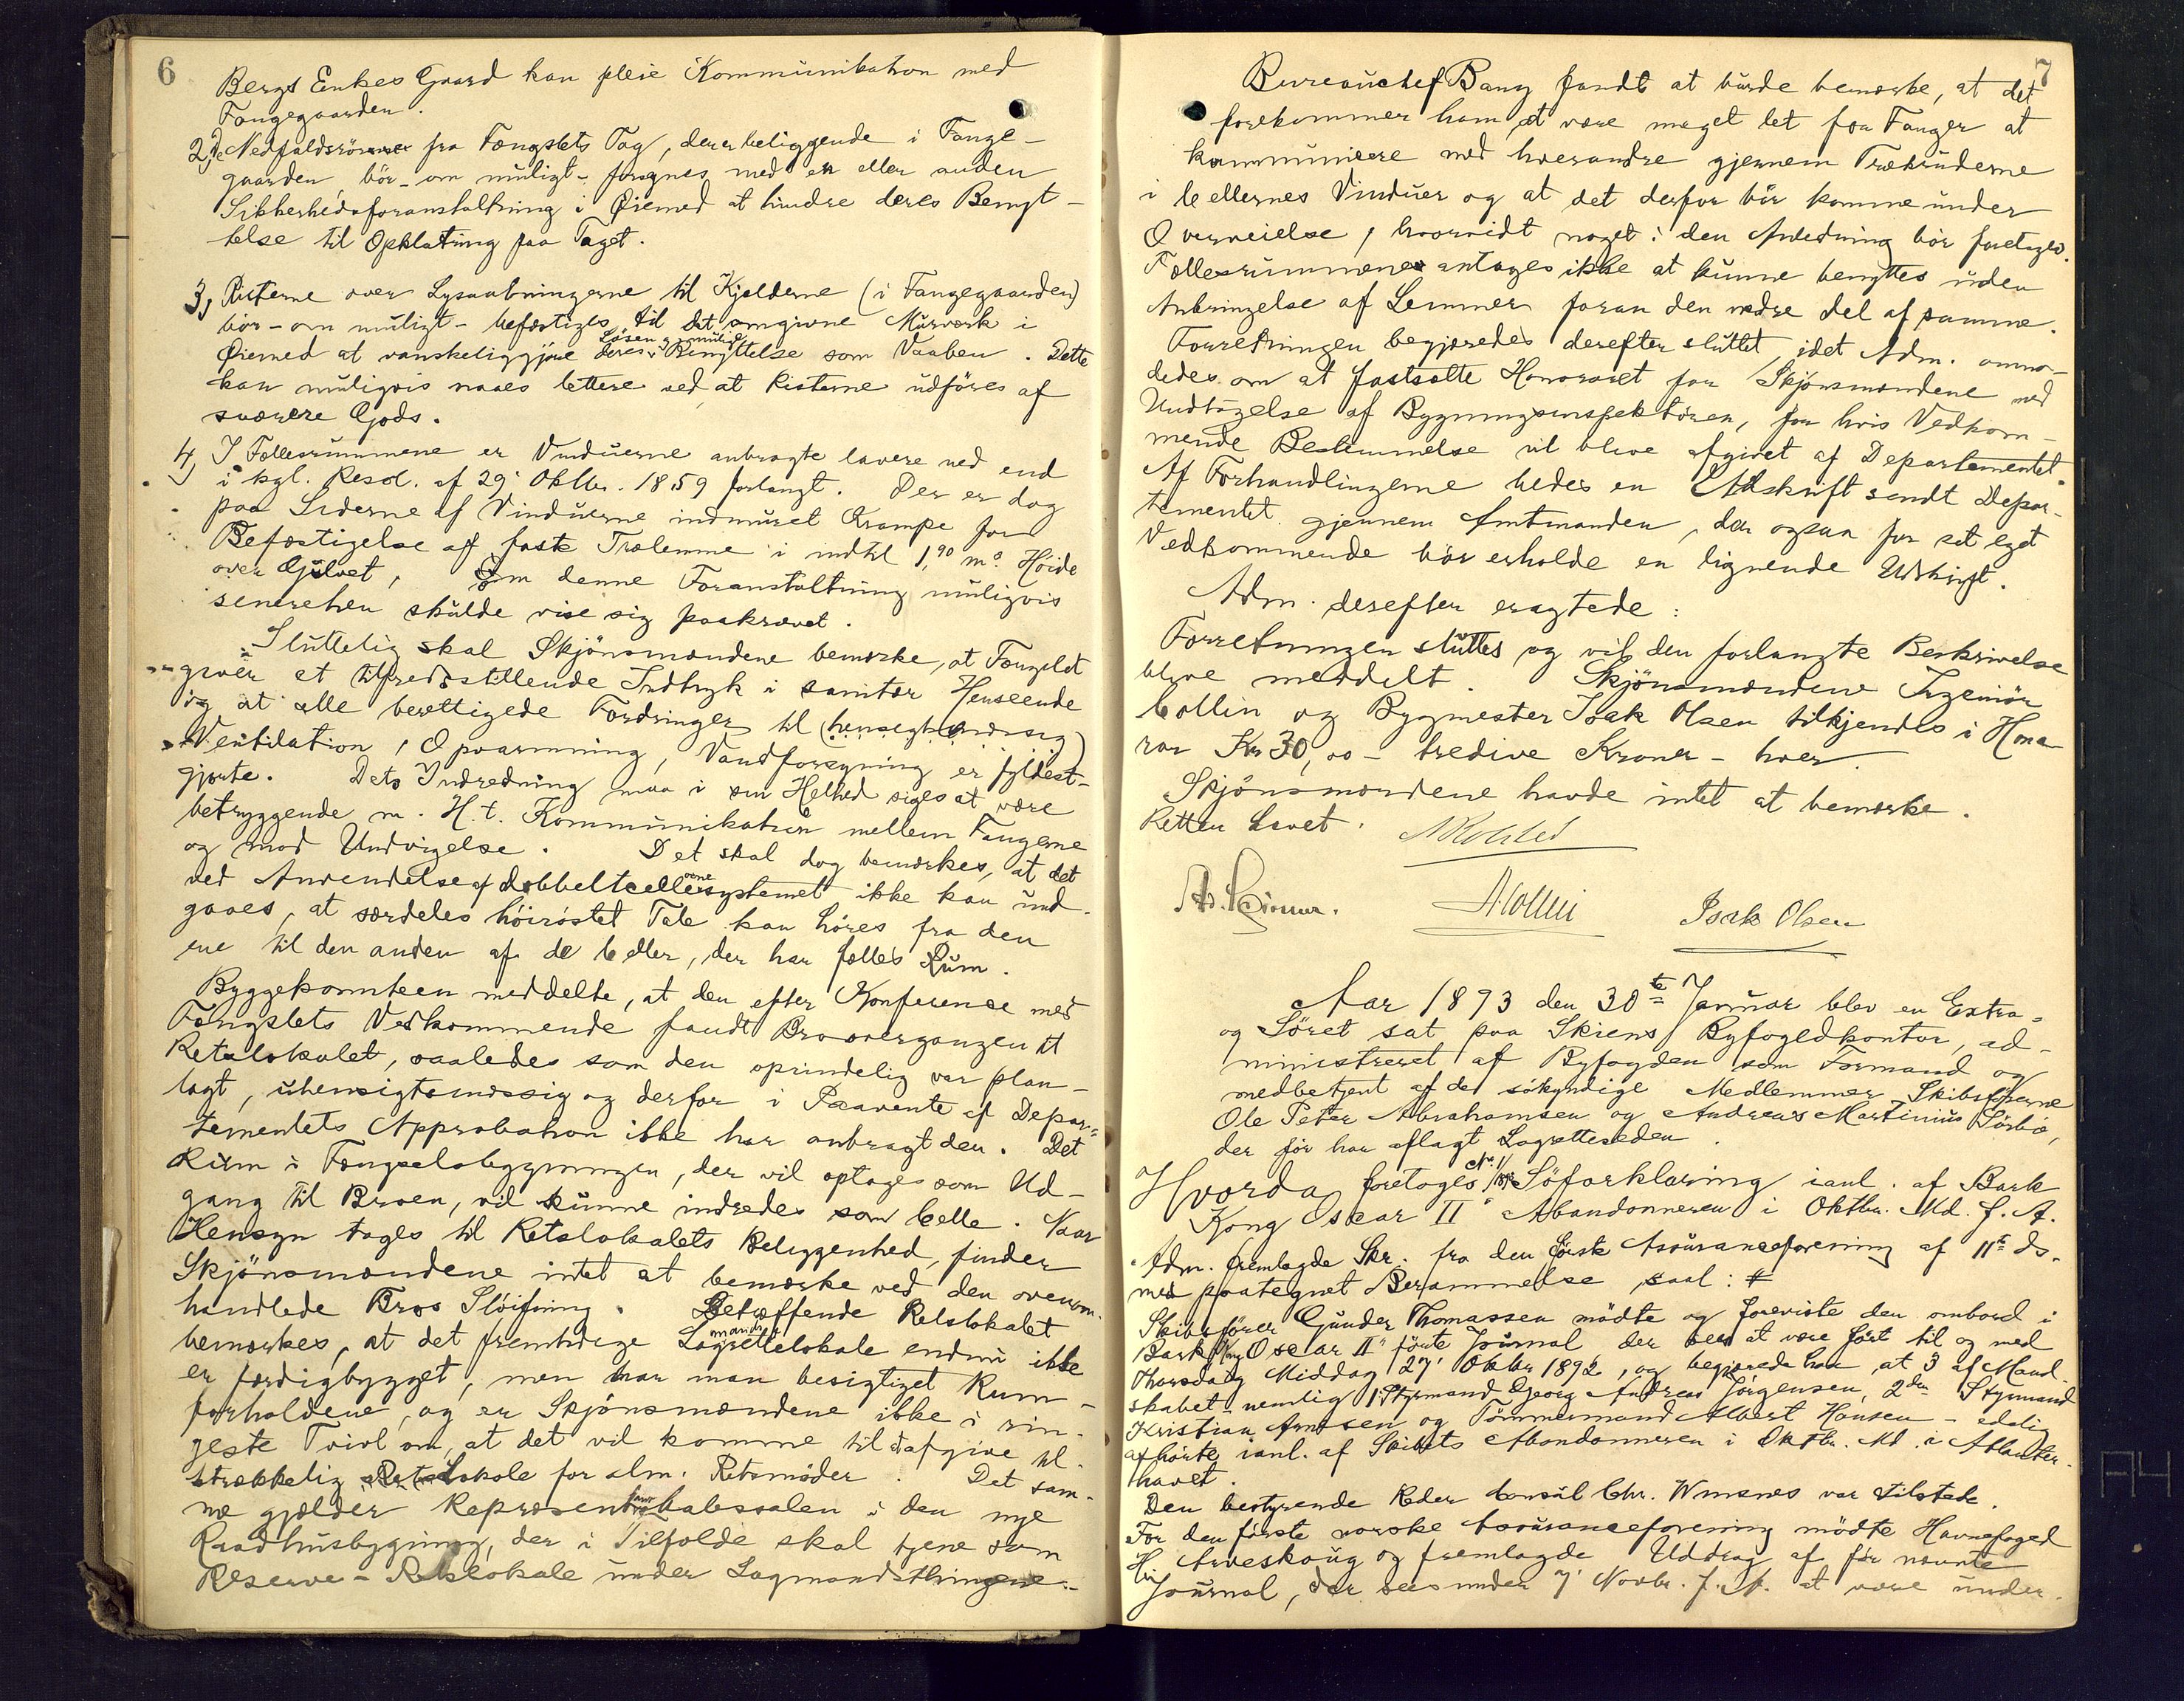 6
Bergs Enkes Gaard kan pleie Kommunikation med
Fangegaarden.
2, De Nedfaldsrör fra Fængslets Tag, der er beliggende i Fange-
gaarden, bör - om muligt - forsynes med en eller anden
Sikkerhedsforanstaltning i Øiemed at hindre deres Benyt-
telse til Opklatring paa Taget.
3, Risterne over Lysaabningerne til Kjelderne (i Fangegaarden)
bör - om muligt - befæstiges til det omgivne Murværk i
Øiemed at vanskeliggjöre deres Løsen og mulige Benyttelse som Vaaben. Dette
kan muligvis naaes lettere ved at Risterne udföres af
sværere Gods.
4, I Fællesrummene er Vinduerne anbragte lavere ned end
i kgl. Resol. af 29' Oktbr. 1859 forlangt. Der er dog
paa Siderne af Vinduerne indmuret Krampe for
Befæstigelse af faste Trælemme i indtil 1,90 m. Höide
over Gulvet, som denne Foranstaltning muligvis
senerehen skulde vise sig paakrævet.
Sluttelig skal Skjönsmændene bemærke, at Fængslet
giver et tilfredsstillende Indtryk i sanitær Henseende
og at alle berettigede Fordringer til (hensigtsmæssig)
Ventilation, Opvarmning, Vandforsyning er fyldest-
gjorte. Dets Indredning maa i sin Helhed siges at være
betryggende m. H. t. Kommunikation mellem Fangerne
og mod Undvigelse. Det skal dog bemærkes, at det
ved Anvendelse af dobbeltcellesystemet ikke kan und-
gaaes, at særdeles höiröstet Tale kan höres fra den
ene til den anden af de Celler, der har fælles Rum.
Byggekomiteen meddelte, at den efter Konference med
Fængslets Vedkommende fandt Broovergangen til
Retslokalet, saaledes som den oprindelig var plan-
lagt, uhensigtsmæssig og derfor i Paavente af Depar-
tementets Approbation ikke har anbragt den. Det
Rum i Fængselsbygningen, der vil optages som Ud-
gang til Broen, vil kunne indredes som Celle. Naar
Hensyn tages til Retslokalets Beliggenhed, finder
Skjönsmændene intet at bemærke ved den ovenom-
handlede Bros Slöifning. Betræffende Retslokalet
bemærkes, at det fremtidige Lagmandsrettelokale endnu ikke
er færdigbygget, men har man besigtiget Rum-
forholdene, og er Skjönsmændene ikke i rin-
geste Tvivl om, at det vil komme til at afgive til-
strækkelig Lokale for alm. Retsmöder. Det sam-
me gjælder Repræsentantskabssalen i den nye
Raadhusbygning, der i Tilfælde skal tjene som
Reserve-Retslokale under Lagmandsthingene.
7
Bureauchef Bang fandt at burde bemærke, at det
forekommer ham at være meget let for Fanger at
kommunicere med hverandre gjennem Trækruderne
i Cellernes Vinduer og at det derfor bör komme under
Overveielse, hvorvidt noget i den Anledning bör foretages.
Fællesrummene antages ikke at kunne benyttes uden
Anbringelse af Lemmer foran den nedre del af samme.
Forretningen begjæredes derefter sluttet idet Adm. anmo-
dedes om at fastsætte Honoraret for Skjönsmændene med
Undtagelse af Bygningsinspektören, for hvis Vedkom-
mende Bestemmelse vil blive afgivet af Departementet.
Af Forhandlingerne bedes en Udskrift sendt Depar-
tementet gjennem Amtmanden, der ogsaa for sit eget
Vedkommende bör erholde en lignende Udskrift.
Adm. derefter eragtede:
Forretningen sluttes og vil den forlangte Beskrivelse
blive meddelt. Skjönsmændene Ingeniör
Collin og Bygmester Isak Olsen tilkjendes i Hono-
rar Kr 30,00 - tredive Kroner - hver.
Skjönsmændene havde intet at bemærke.
Retten hævet.
A Collin
Isak Olsen
Aar 1893 den 30te Januar blev en Extra-
og Söret sat paa Skiens Byfogedkontor, ad-
ministreret af Byfogden som Formand og
medbetjent af de sökyndige Medlemmer Skibsförerne
Ole Peter Abrahamsen og Andreas Martinius Sörbö,
der för har aflagt Lagretteseden.
Hvorda foretoges No. 1/1893 Söforklaring i anl. af Bark
Kong Oscar II' Abandonneren i Oktbr. Md. f. A.
Adm. fremlagde Skr. fra den förste Assuranceforening af 11te ds.
med paategnet Berammelse saal: #
Skibsförer Gunder Thomassen mödte og foreviste den ombord i
Bark "Kong Oscar II" förte Journal, der sees at være fört til og med
Thorsdag Middag 27' Oktbr 1892, og begjærede han at 3 af Mand-
skabet - nemlig 1. Styrmand Georg Andreas Jörgensen, 2den Styrmand
Kristian Arntsen og Tömmermand Albert Hansen - edelig
afhörte i anl. af Skibets Abandonneren i Oktbr. Md. i Atlanter-
havet.
Den bestyrende Reder Consul Chr. Winsnes var tilstede.
For den förste norske Assuranceforening mödte Havnefoged
H. Arveskoug og fremlagde Uddrag af för nævnte
Journal, der sees under 7' Novbr. f. A. at være under-